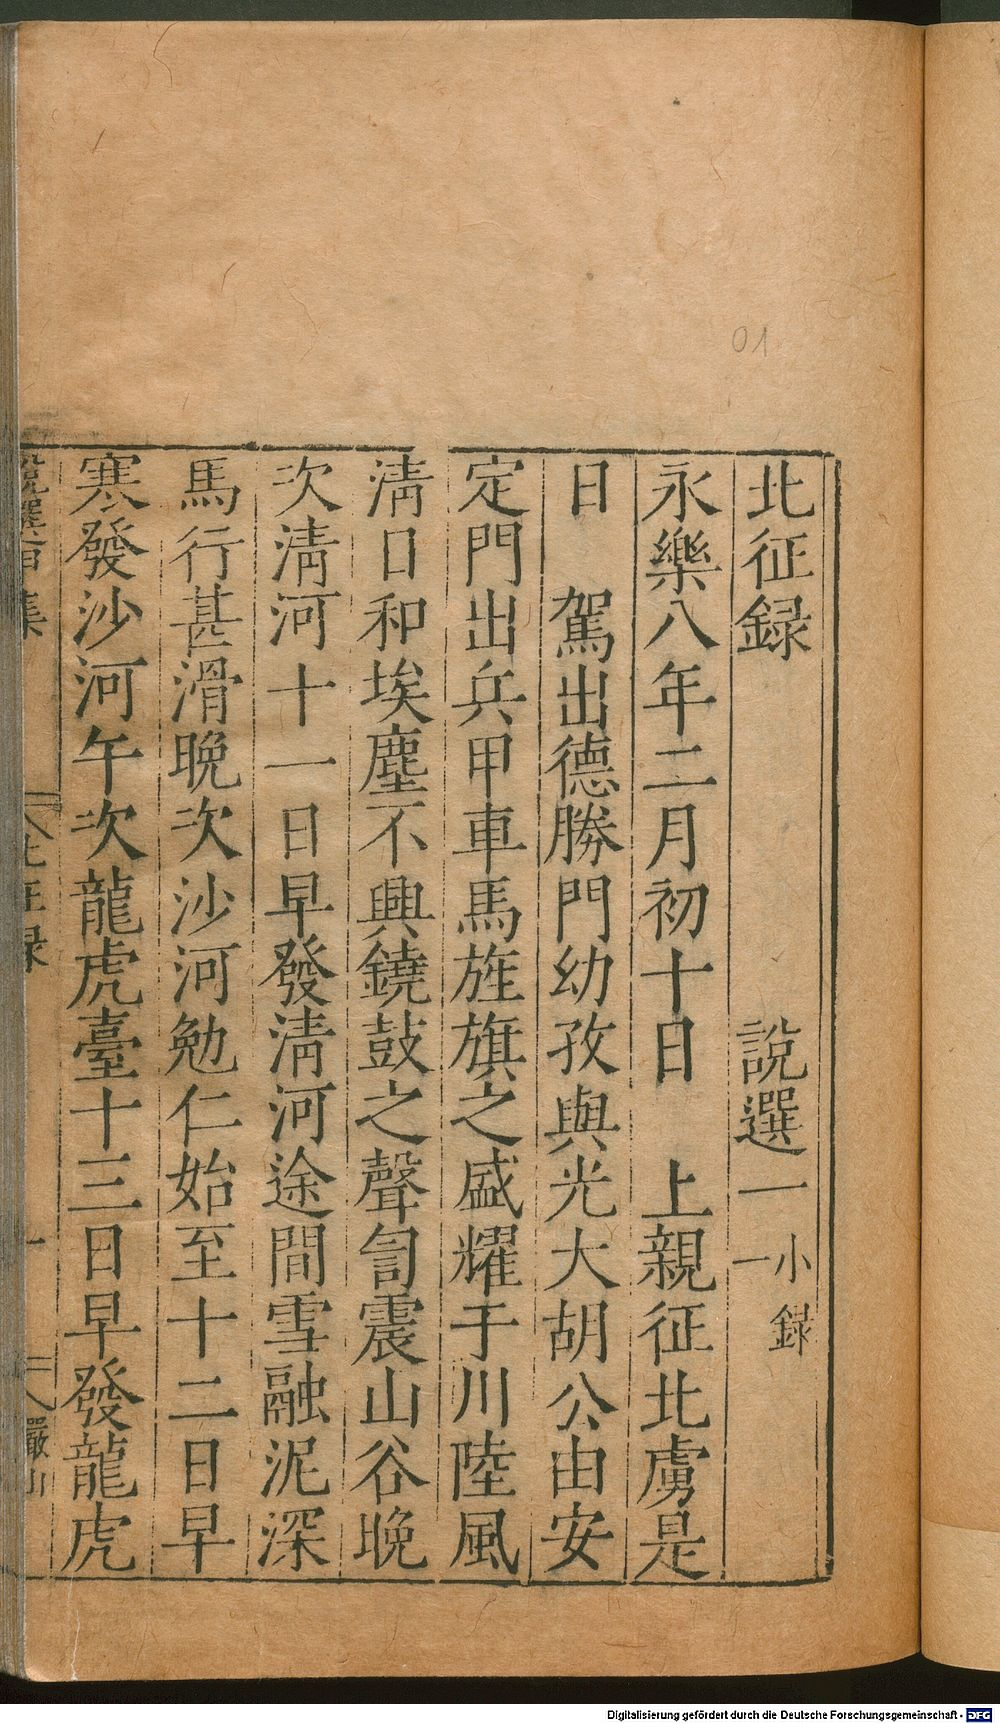 北征録 說選一 小録一
永樂八年二月初十日 上親征北虜是
日 駕出德勝門幼孜與光大胡公由安
定門出兵甲車馬旌旗之盛耀于川陸風
淸日和埃塵不興鐃鼓之聲訇震山谷晚
次淸河十一日早發淸河途間雪融泥深
馬行甚滑晚次沙河勉仁始至十二日早
寒發沙河午次龍虎臺十三日早發龍虎
北征録 一 嚴山
01
Digitalisierung gefördert durch die Deutsche Forschungsgemeinschaft - DFG